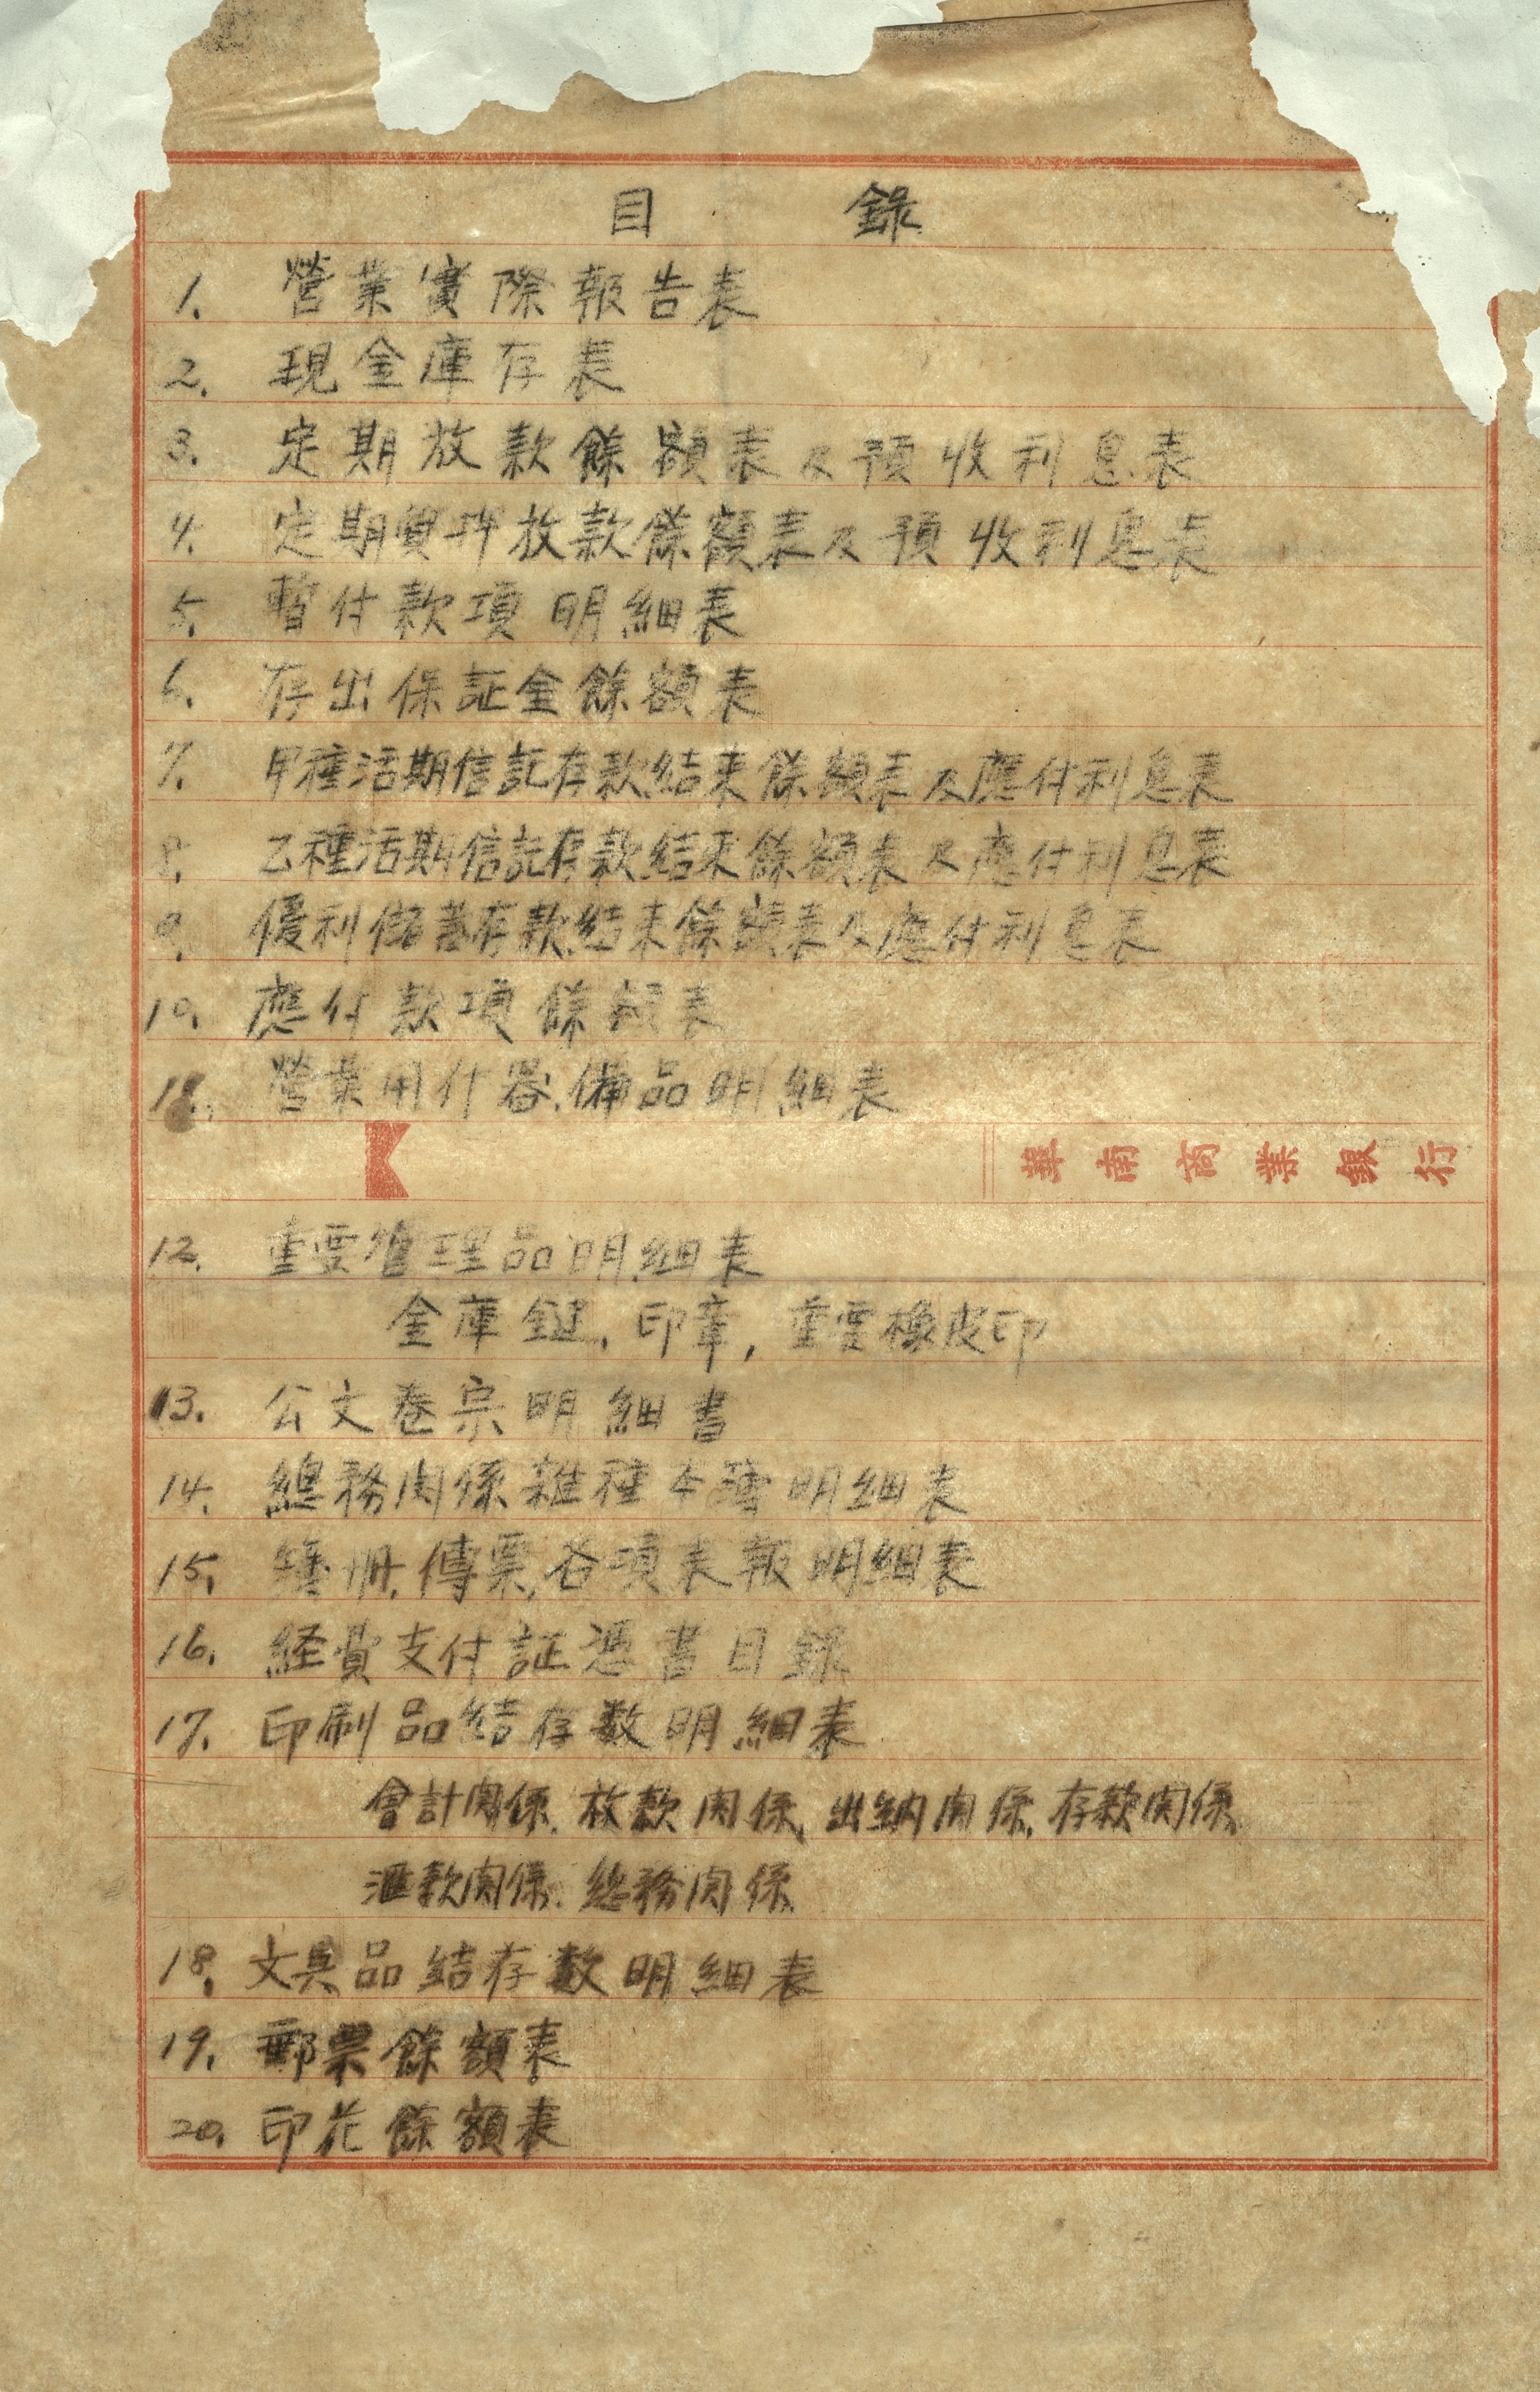 目 錄
1. 營業實際報告表
2. 現金庫存表
3. 定期放款餘額表及預收利息表
4. 定期質押放款餘額表及預收利息表
5. 暫付款項明細表
6. 存出保証金餘額表
7. 甲種活期信託存款結末餘額表及應付利息表
8. 乙種活期信託存款結末餘額表及應付利息表
9. 優利儲蓄存款結末餘額表及應付利息表
10. 應付款項餘額表
11. 營業用什器、備品明細表
華南商業銀行
12. 重要管理品明細表
金庫鍵, 印章, 重要橡皮印
13. 公文卷宗明細書
14. 總務関係雜種本簿明細表
15. 簿冊、傳票、各項表報明細表
16. 経費支付証憑書目錄
17. 印刷品結存数明細表
會計関係、放款関係、出納関係、存款関係、
滙款関係、総務関係、
18. 文具品結存数明細表
19. 郵票餘額表
20. 印花餘額表